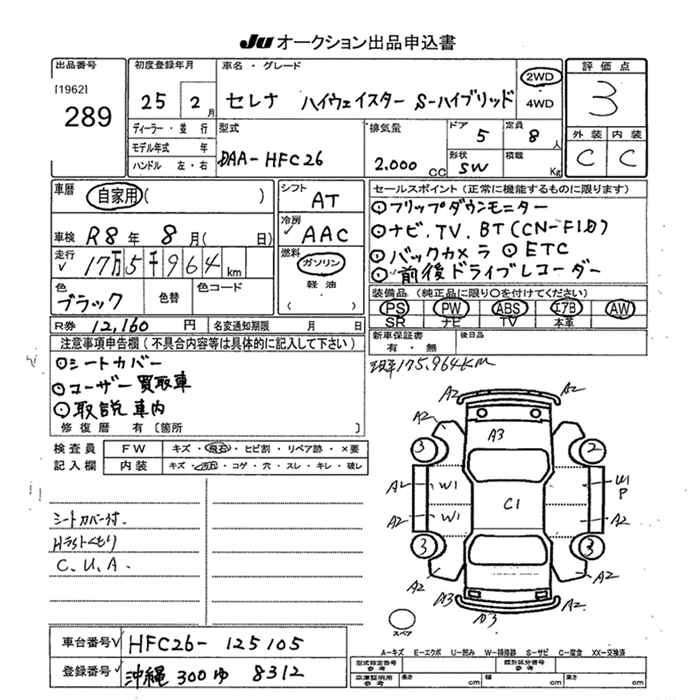 JU オークション出品申込書
出品番号 初度登録年月 車名・グレード 評価点
[1962] 289 25 2月 セレナ ハイウェイスター S-ハイブリッド 2WD 4WD 3
ディーラー・並行 型式 排気量 ドア 5 定員 8人 外装 内装
モデル年式 年 DAA-HFC26 2.000cc 形状 SW 積載 Kg C C
ハンドル 左・右
車歴 自家用( ) シフト AT セールスポイント(正常に機能するものに限ります)
フリップダウンモニター
車検 R8年 8月( 日) 冷房 AAC ナビ.TV.BT(CN-F1D)
走行 17万5千964km 燃料 ガソリン 軽油 ( ) バックカメラ ETC
前後ドライブレコーダー
色 ブラック 色替 色コード 装備品(純正品に限り○を付けてください)
PS PW ABS エアB AW
SR ナビ TV 本革
R券 12,160円 名変通知期限 月 日 新車保証書 有・無 後日品
注意事項申告欄(不具合内容等は具体的に記入して下さい) 175.964KM
シートカバー
ユーザー買取車
取説車内
修復歴 有〔箇所 〕
検査員 FW キズ・飛石・ヒビ割・リペア跡・×要
記入欄 内装 キズ・汚れ・コゲ・穴・スレ・キレ・破レ
シートカバー付.
Hライトくもり
C.U.A.
A2 A2
A2 A3 A2
3 2
A2 W1 U1 P
C1
A2 W1 A2
3 3
A2 A2
A3 A3
スペア
A-キズ E-エクボ U-凹み W-補修跡 S-サビ C-腐食 XX-交換済
車台番号 HFC26-125105 型式指定番号 参考 類別区分番号 参考
登録番号 沖縄 300 ゆ 8312 車庫証明用 参考 長さ cm 幅 cm 高さ cm